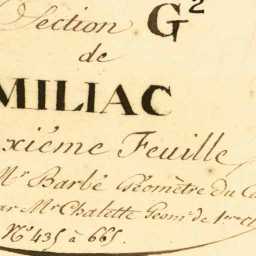 Section G²
de
MILIAC
xiéme Feuille
Mr Barbé Géomètre du Ca
ar Mr Chalette Geom. de 1re cl
No 435 à 665.